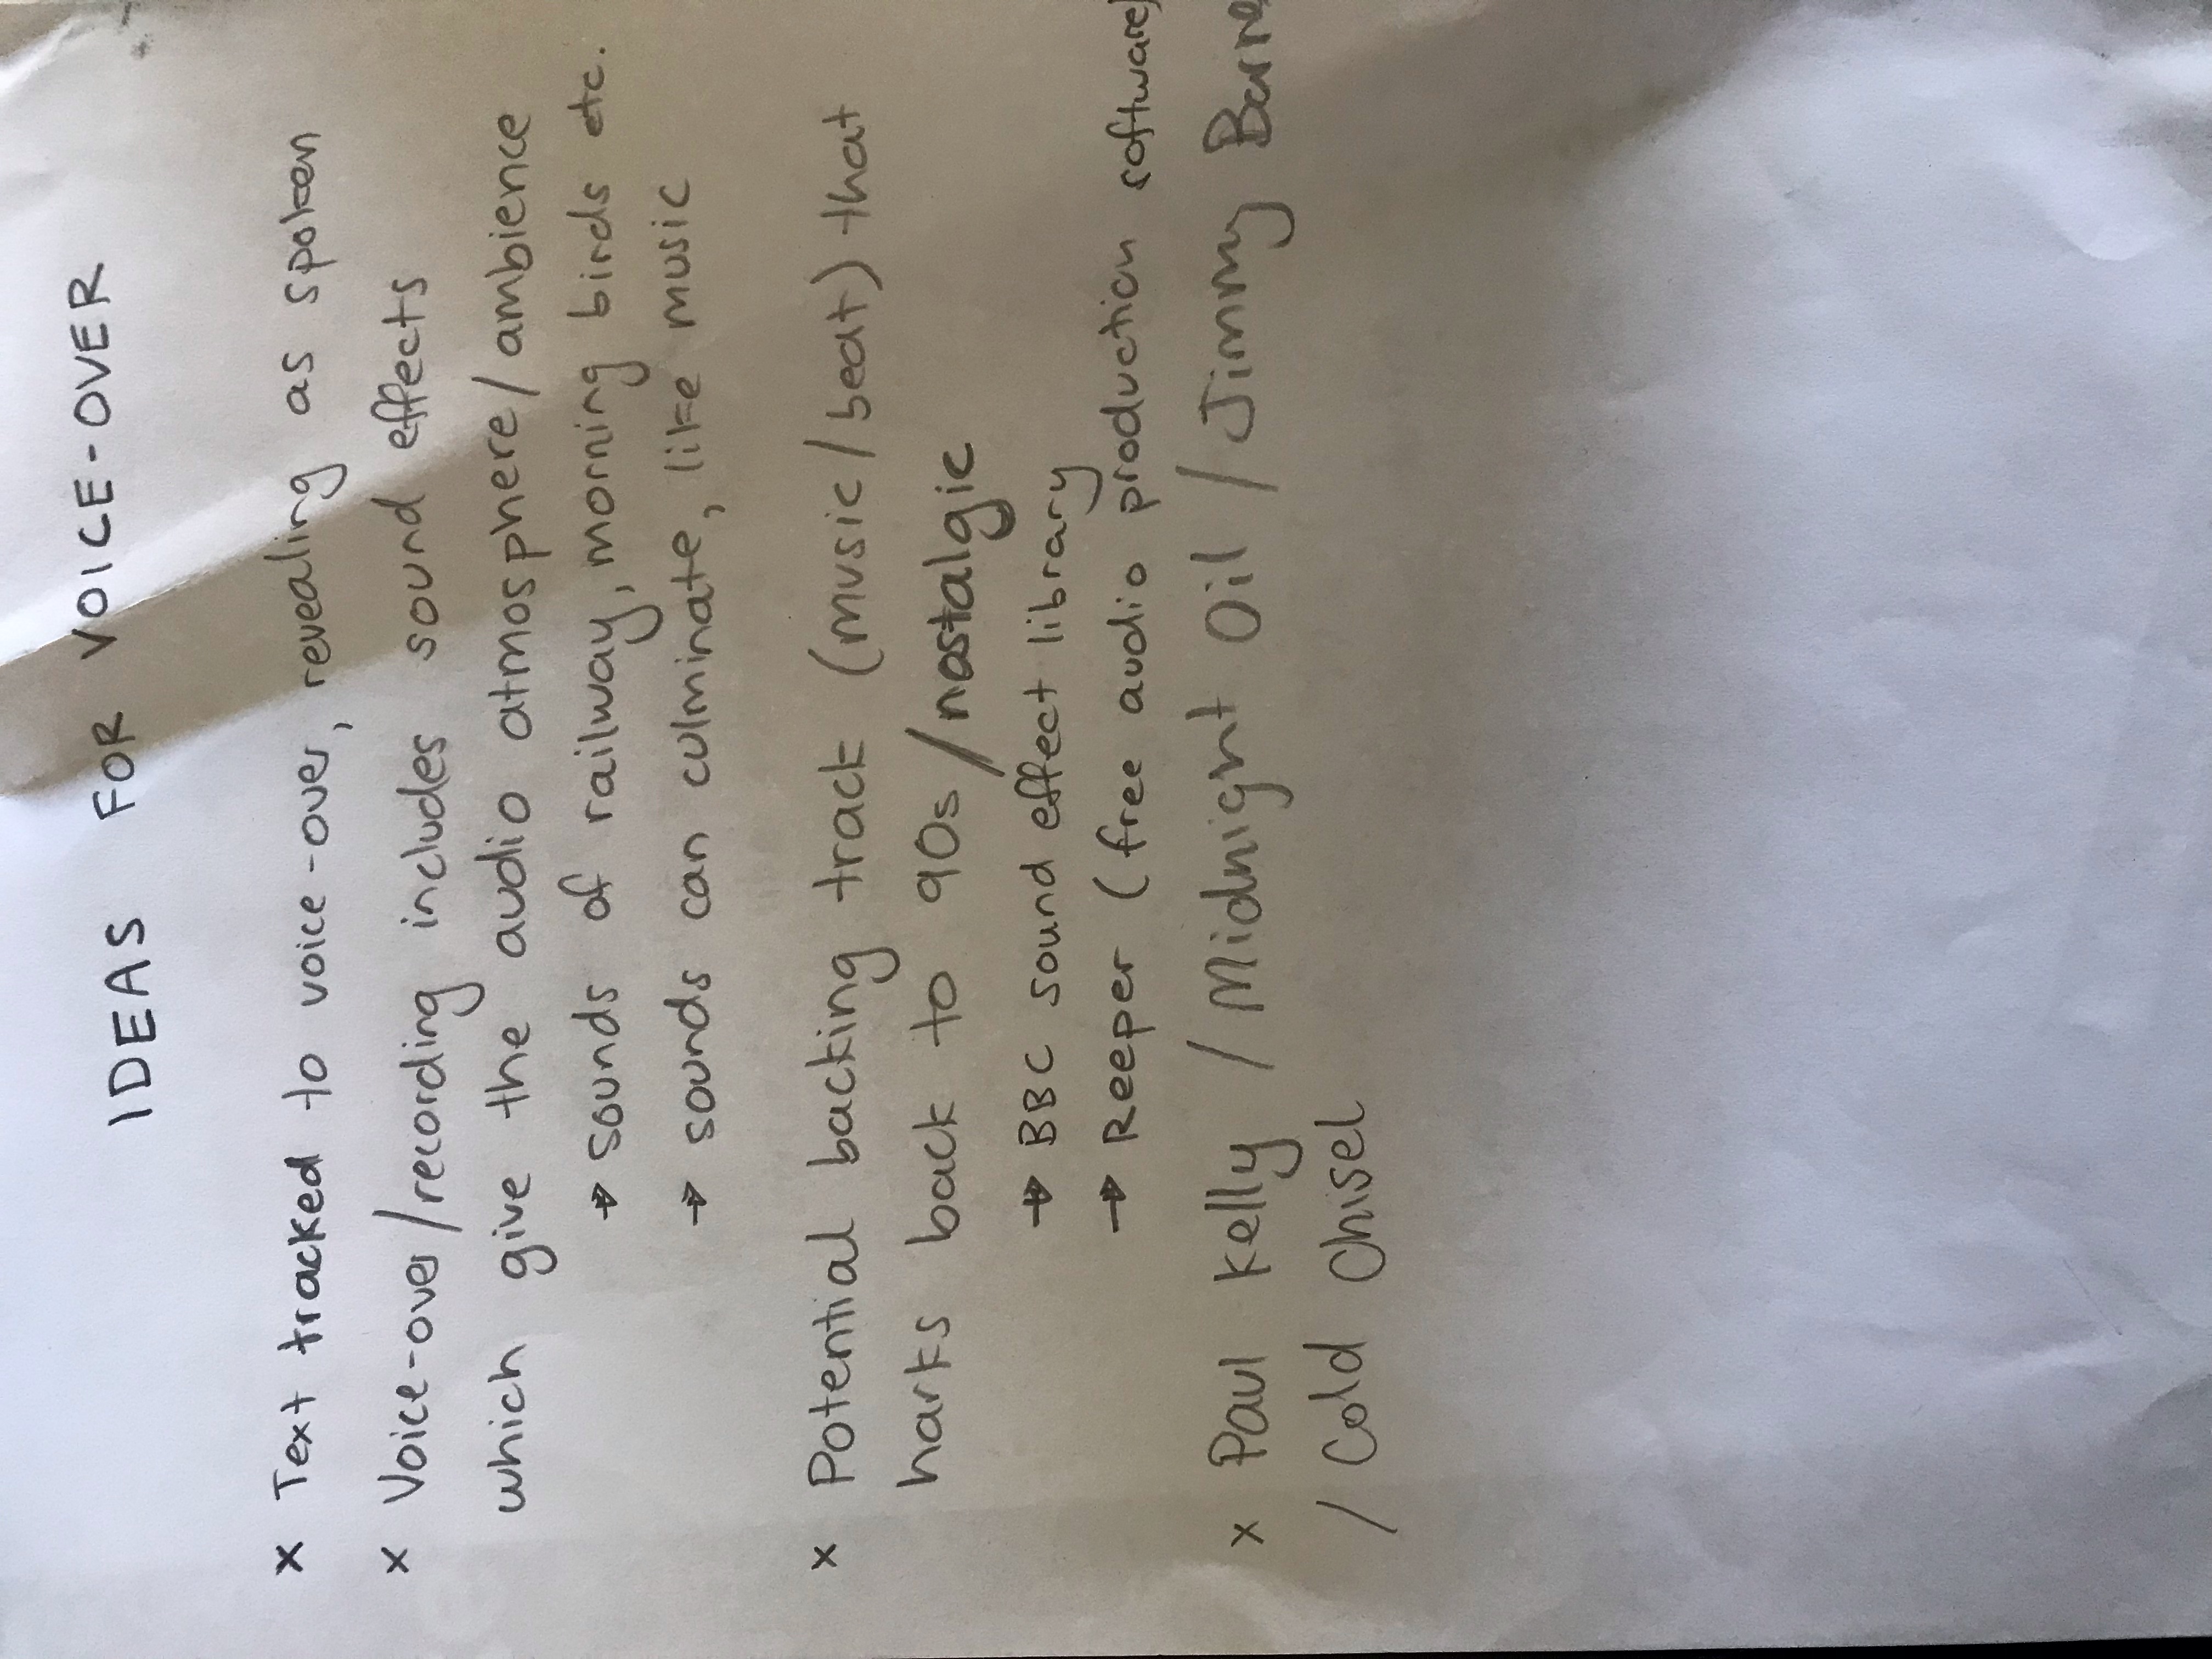 IDEAS FOR VOICE-OVER
x Text tracked to voice-over, revealing as spoken
x Voice-over/recording includes sound effects
which give the audio atmosphere/ambience
→ sounds of railway, morning birds etc.
→ sounds can culminate, like music
x Potential backing track (music/beat) that
harks back to 90s/nostalgic
→ BBC sound effect library
→ Reeper (free audio production software)
x Paul Kelly / Midnight Oil / Jimmy Barne
/ Cold Chisel